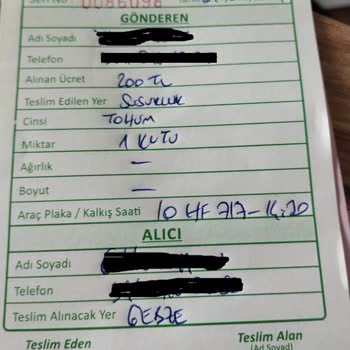 0086098
GÖNDEREN
Adı Soyadı
Telefon
Alınan Ücret 200 TL
Teslim Edilen Yer SUSURLUK
Cinsi TOHUM
Miktar 1 KUTU
Ağırlık —
Boyut —
Araç Plaka / Kalkış Saati 10 HF 717-14:20
ALICI
Adı Soyadı
Telefon
Teslim Alınacak Yer GEBZE
Teslim Eden Teslim Alan
(Ad Soyad)